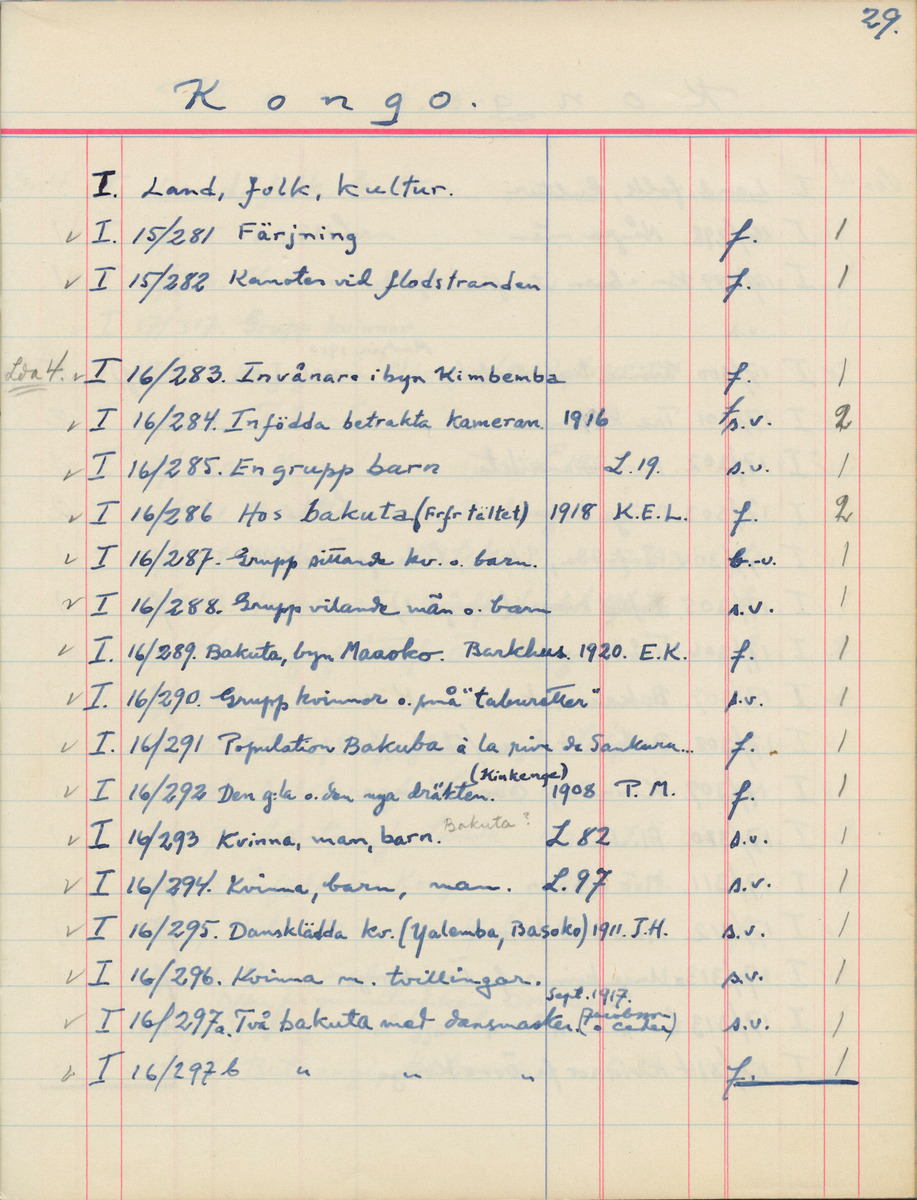 29.
Kongo.
I. Land, folk, kultur.
✓ I. 15/281 Färjning f. 1
✓ I 15/282 Kanoter vid flodstranden f. 1
Lda 4. ✓ I 16/283. Invånare i byn Kimbemba f. 1
✓ I 16/284. Infödda betrakta kameran. 1916 f s.v. 2
✓ I 16/285. En grupp barn L.19. s.v. 1
✓ I 16/286 Hos bakuta (Frfr tältet) 1918 K.E.L. f. 2
✓ I 16/287. Grupp sittande kv. o. barn. s.v. 1
✓ I 16/288. Grupp vilande män o. barn s.v. 1
✓ I. 16/289. Bakuta, byn Maaoko. Barkhus. 1920. E.K. f. 1
✓ I. 16/290. Grupp kvinnor o. små "taburetter" s.v. 1
✓ I. 16/291 Population Bakuba à la rive de Sankuru... f. 1
(Kinkenge)
✓ I 16/292 Den g:la o. den nya dräkten. 1908 P.M. f. 1
✓ I 16/293 Kvinna, man, barn. Bakuta? L 82 s.v. 1
✓ I 16/294. Kvinna, barn, man. L.97 s.v. 1
✓ I 16/295. Dansklädda kv. (Yalemba, Basoko) 1911. J.H. s.v. 1
✓ I 16/296. Kvinna m. tvillingar. s.v. 1
Sept. 1917.
✓ I 16/297a. Två bakuta med dansmasker. (Jacobsson o Ceder) s.v. 1
✓ I 16/297b " " " f. 1